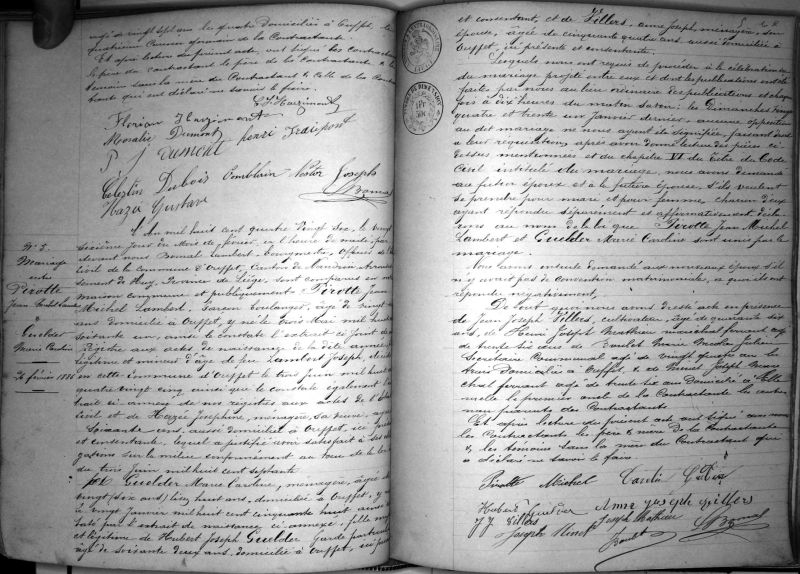 âgé de vingt sept ans les quatre Domiciliés à Ouffet, le
quatrième Cousin germain de la Contractante.
Et après lecture du présent acte, ont signé les Contractants
le père du contractant le frère de la Contractante & les
témoins sauf la mère du Contractant & celle de la Contrac
tante qui ont déclaré ne savoir le faire.
Florian
Rosalie Dumont henri Fraipont
P J Dumont
Célestin Dubois Comblain Victor Joseph
Hazée Gustave Bomal
N° 5
Mariage
entre
Pirotte
Jean Michel Lambert
&
Guelder
Marie Caroline
26 février 1886
L'An mil huit cent quatre vingt six, le vingt
sixième jour du Mois de février, à heure de
devant nous Bomal Lambert, Bourgmestre, officier de l'État
Civil de la Commune d'Ouffet, Canton de Nandrin Arrondis
sement de Huy, Province de Liège, sont comparus en notre
maison commune et publiquement Pirotte Jean
Michel Lambert Garçon boulanger, âgé de vingt
ans domicilié à Ouffet, y né le trois Mai mil huit cent
soixante un, ainsi le constate l'extrait ci joint de nos
Registre aux actes de naissance de la dite année, fils
légitime et mineur d'âge de feu Lambert Joseph, décédé
en cette commune d'Ouffet le trois juin mil huit cent
quatre vingt cinq ainsi que le constate également l'ex
trait ci annexé de nos registres aux actes de l'État
Civil et de Hazée Josephine, ménagère, sa veuve, âgée
Soixante ans, aussi domiciliée à Ouffet, ici présente
et consentante. Lequel a justifié avoir satisfait à ses obli
gations sur la milice conformément au vœu de la loi
du trois Juin mil huit cent septante
Et Guelder Marie Caroline, ménagère, âgée de
vingt (six ans) huit ans, domiciliée à Ouffet, y née
le vingt Janvier mil huit cent cinquante huit ainsi
taté par l'extrait de naissance ci annexé, fille majeure
et légitime de Hubert Joseph Guelder Garde particulier
âgé de soixante deux ans, domicilié à Ouffet, ici présent
et consentant, et de Fillers, Anne Joseph, ménagère, son
épouse, âgée de cinquante quatre ans aussi domiciliée à
Ouffet, ici présente et consentante.
Lesquels nous ont requis de procéder à la célébration
du mariage projeté entre eux et dont les publications ont été
faites par nous au lieu ordinaire des publications et chaque
fois à dix heures du matin savoir: les Dimanches vingt
quatre et trente un Janvier dernier, aucune opposition
au dit mariage ne nous ayant été signifiée, faisant droit
à leur réquisition, après avoir donné lecture des pièces ci
dessus mentionnées et du chapitre VI du titre du Code
Civil intitulé du mariage, nous avons demandé
au futur époux et à la future épouse, s'ils veulent
se prendre pour mari et pour femme, chacun d'eux
ayant répondu séparément et affirmativement décla
rons au nom de la loi que Pirotte Jean Michel
Lambert et Guelder Marie Caroline sont unis par le
mariage.
Nous avons ensuite demandé aux nouveaux époux s'il
n'y avait pas de convention matrimoniale, à quoi ils ont
répondu négativement,
De tout quoi nous avons dressé acte en présence
de Jean Joseph Fillers, Cultivateur, âgé de quarante six
ans, de Henri Joseph Mathieu maréchal ferrant âgé
de trente six ans de Boulet Marie Nicolas Julien
Secrétaire Communal âgé de vingt quatre ans les
trois Domiciliés à Ouffet, & de Joseph Maré
chal ferrant âgé de trente six ans Domicilié à
le premier oncle de la Contractante les autres
non parents des Contractants
Et après lecture du présent acte ont signé avec nous
les Contractants, les père & mère de la Contractante
& les témoins sauf la mère du Contractant qui
a déclaré ne savoir le faire.
Pirotte Michel
Hubert Guelder Anne Joseph Fillers
JJ Fillers Joseph Mathieu
Joseph Boulet Bomal